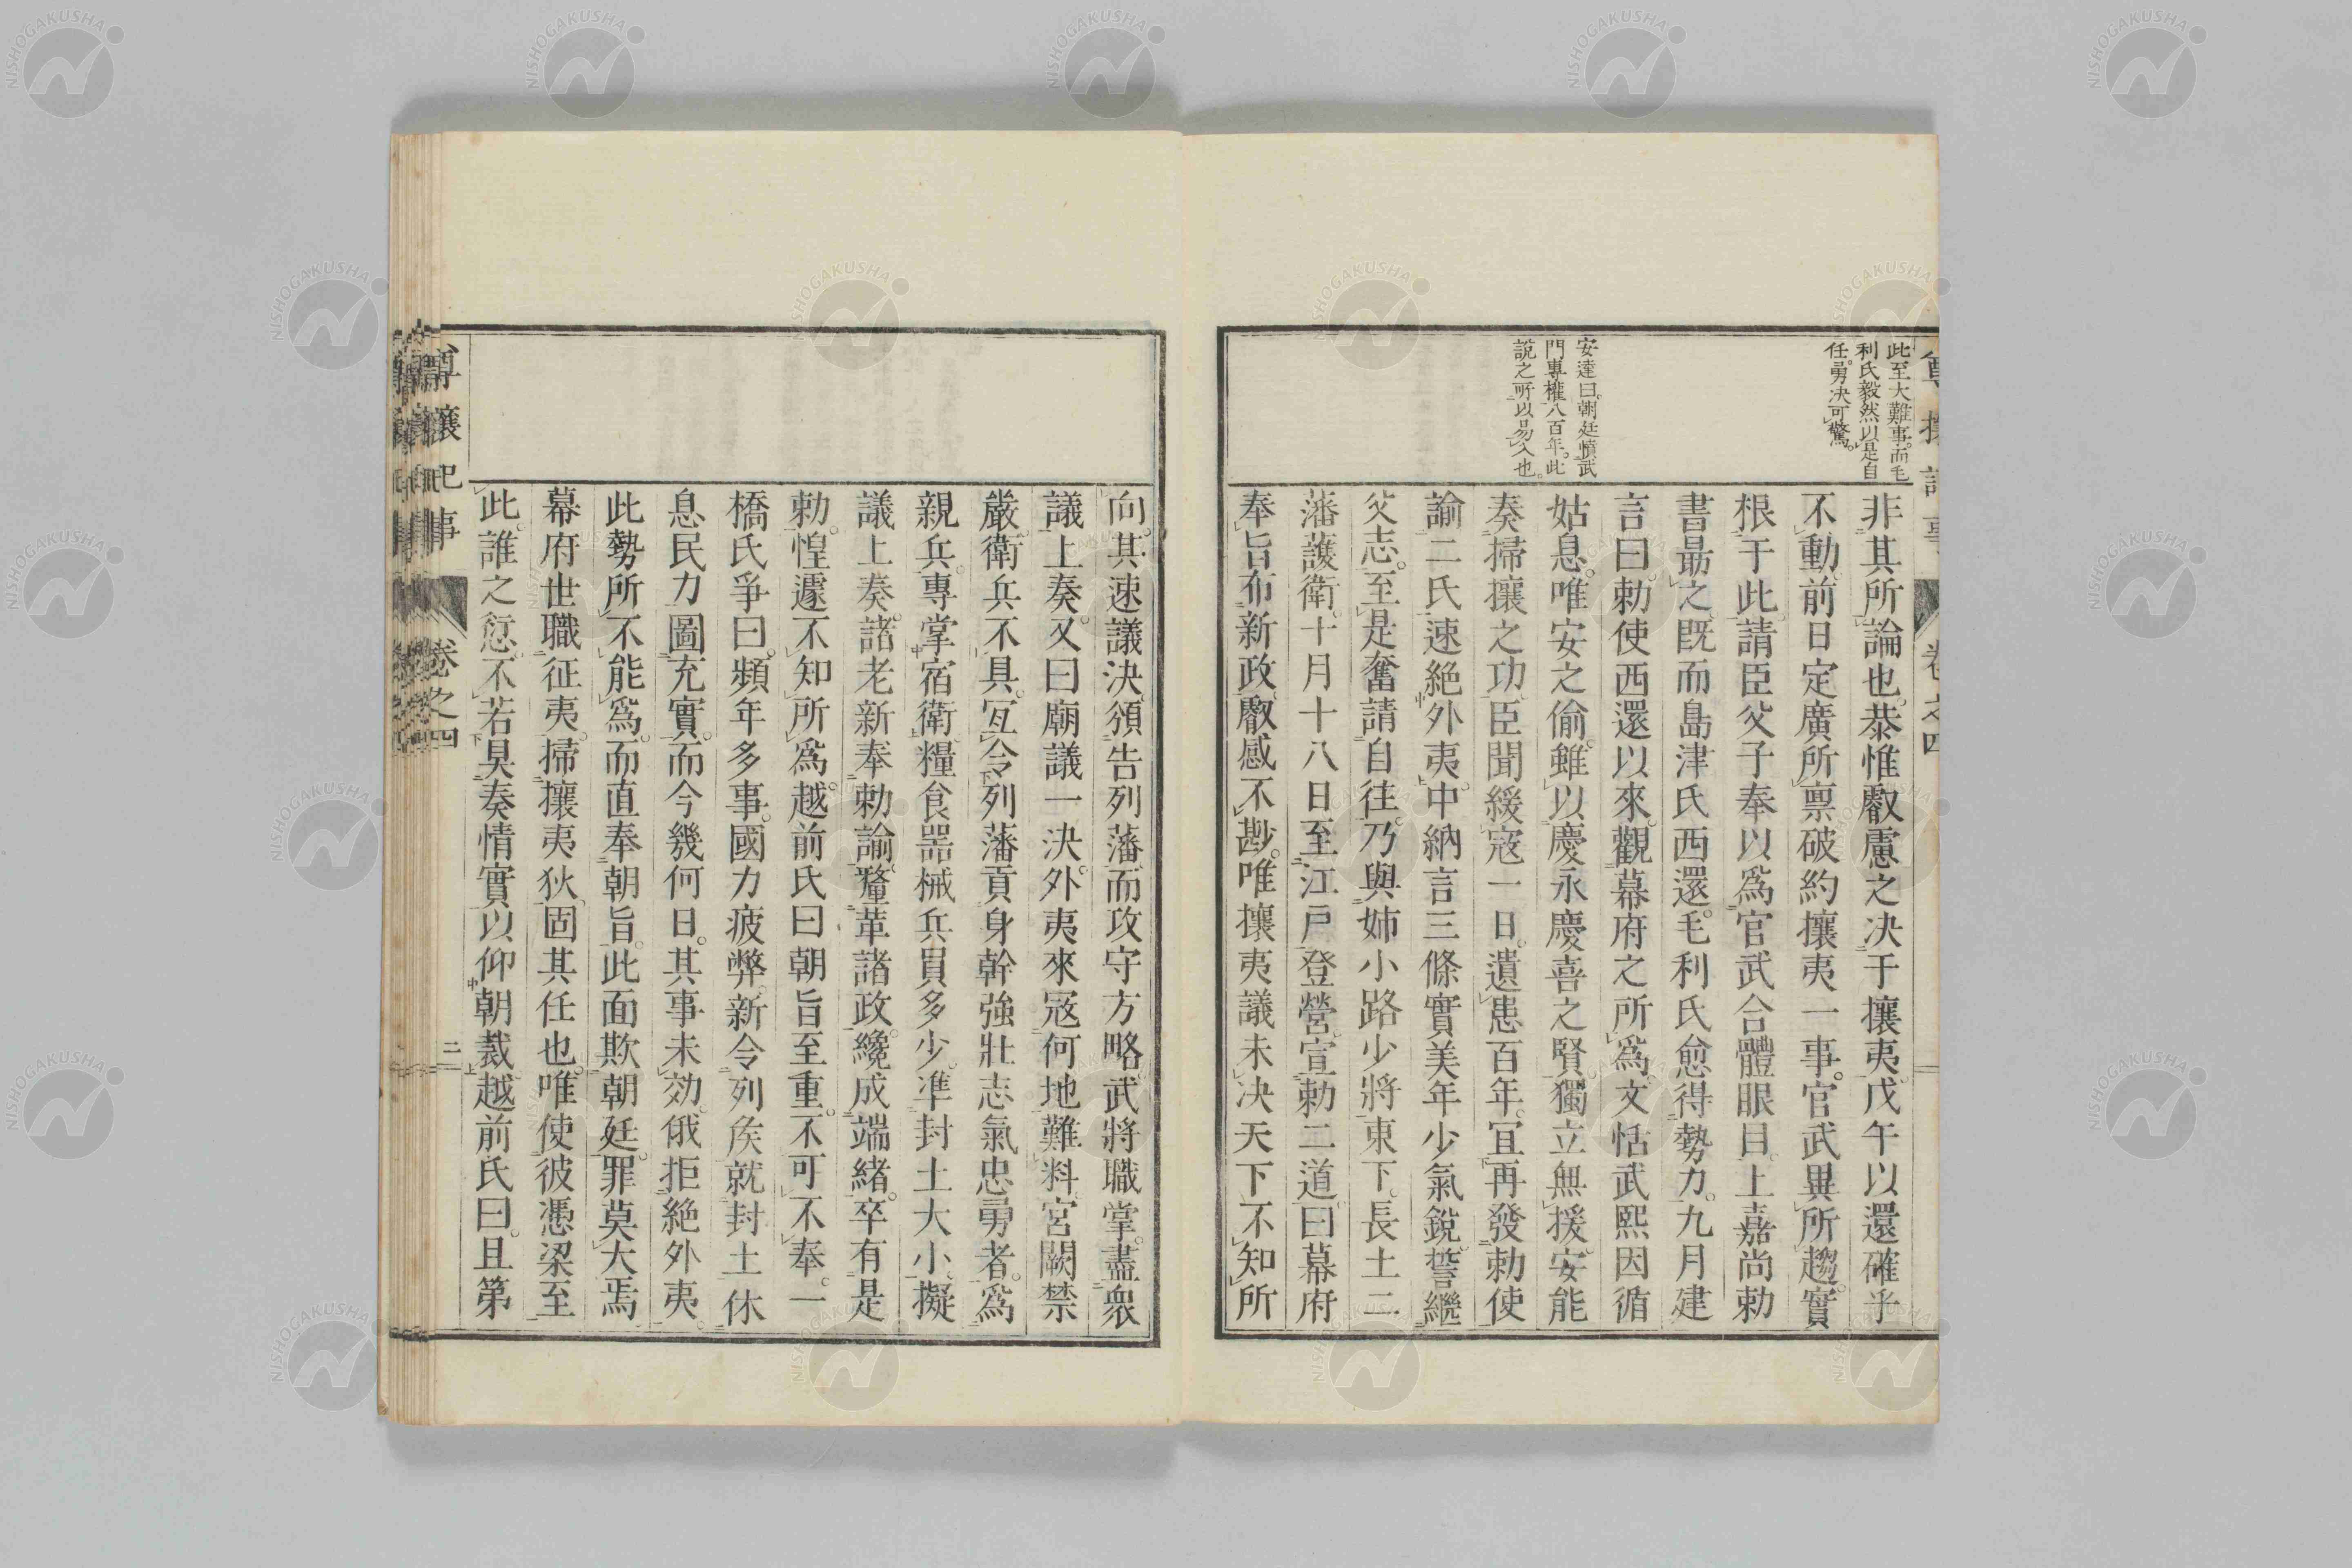 此至大難事。而毛
利氏毅然以是自
任。勇決可驚。
安達曰。朝廷憤武
門專權八百年。此
說之所以易入也。
非其所論也。恭惟叡慮之決于攘夷。戊午以還確乎
不動。前日定廣所稟破約攘夷一事。官武異所趨。實
根于此。請臣父子奉以爲官武合體眼目。上嘉尚勅
書最之。既而島津氏西還。毛利氏愈得勢力。九月建
言曰。勅使西還以來。觀幕府之所爲。文恬武熙因循
姑息。唯安之偷。雖以慶永慶喜之賢。獨立無援。安能
奏掃攘之功。臣聞緩寇一日。遺患百年。宜再發勅使
諭二氏速絕外夷。中納言三條實美年少氣銳。誓繼
父志。至是奮請自往。乃與姉小路少將東下。長土二
藩護衛。十月十八日至江戶登營。宣勅二道。曰幕府
奉旨布新政。叡感不尠。唯攘夷議未決。天下不知所
向。其速議決。頒告列藩。而攻守方略武將職掌。盡衆
議上奏。又曰廟議一決。外夷來寇何地難料。宮闕禁
嚴衛兵不具。宜令列藩貢身幹強壯志氣忠勇者。爲
親兵。專掌宿衛。糧食器械兵員多少。準封土大小。擬
議上奏。諸老新奉勅諭。釐革諸政。纔成端緒。卒有是
勅。惶遽不知所爲。越前氏曰朝旨至重。不可不奉。一
橋氏爭曰。頻年多事。國力疲弊。新令列侯就封土休
息民力圖充實。而今幾何日。其事未効。俄拒絕外夷。
此勢所不能爲。而直奉朝旨。此面欺朝廷。罪莫大焉
幕府世職征夷。掃攘夷狄。固其任也。唯使彼憑梁至
此。誰之愆。不若具奏情實以仰朝裁。越前氏曰。且第
尊攘紀事
卷之四
二